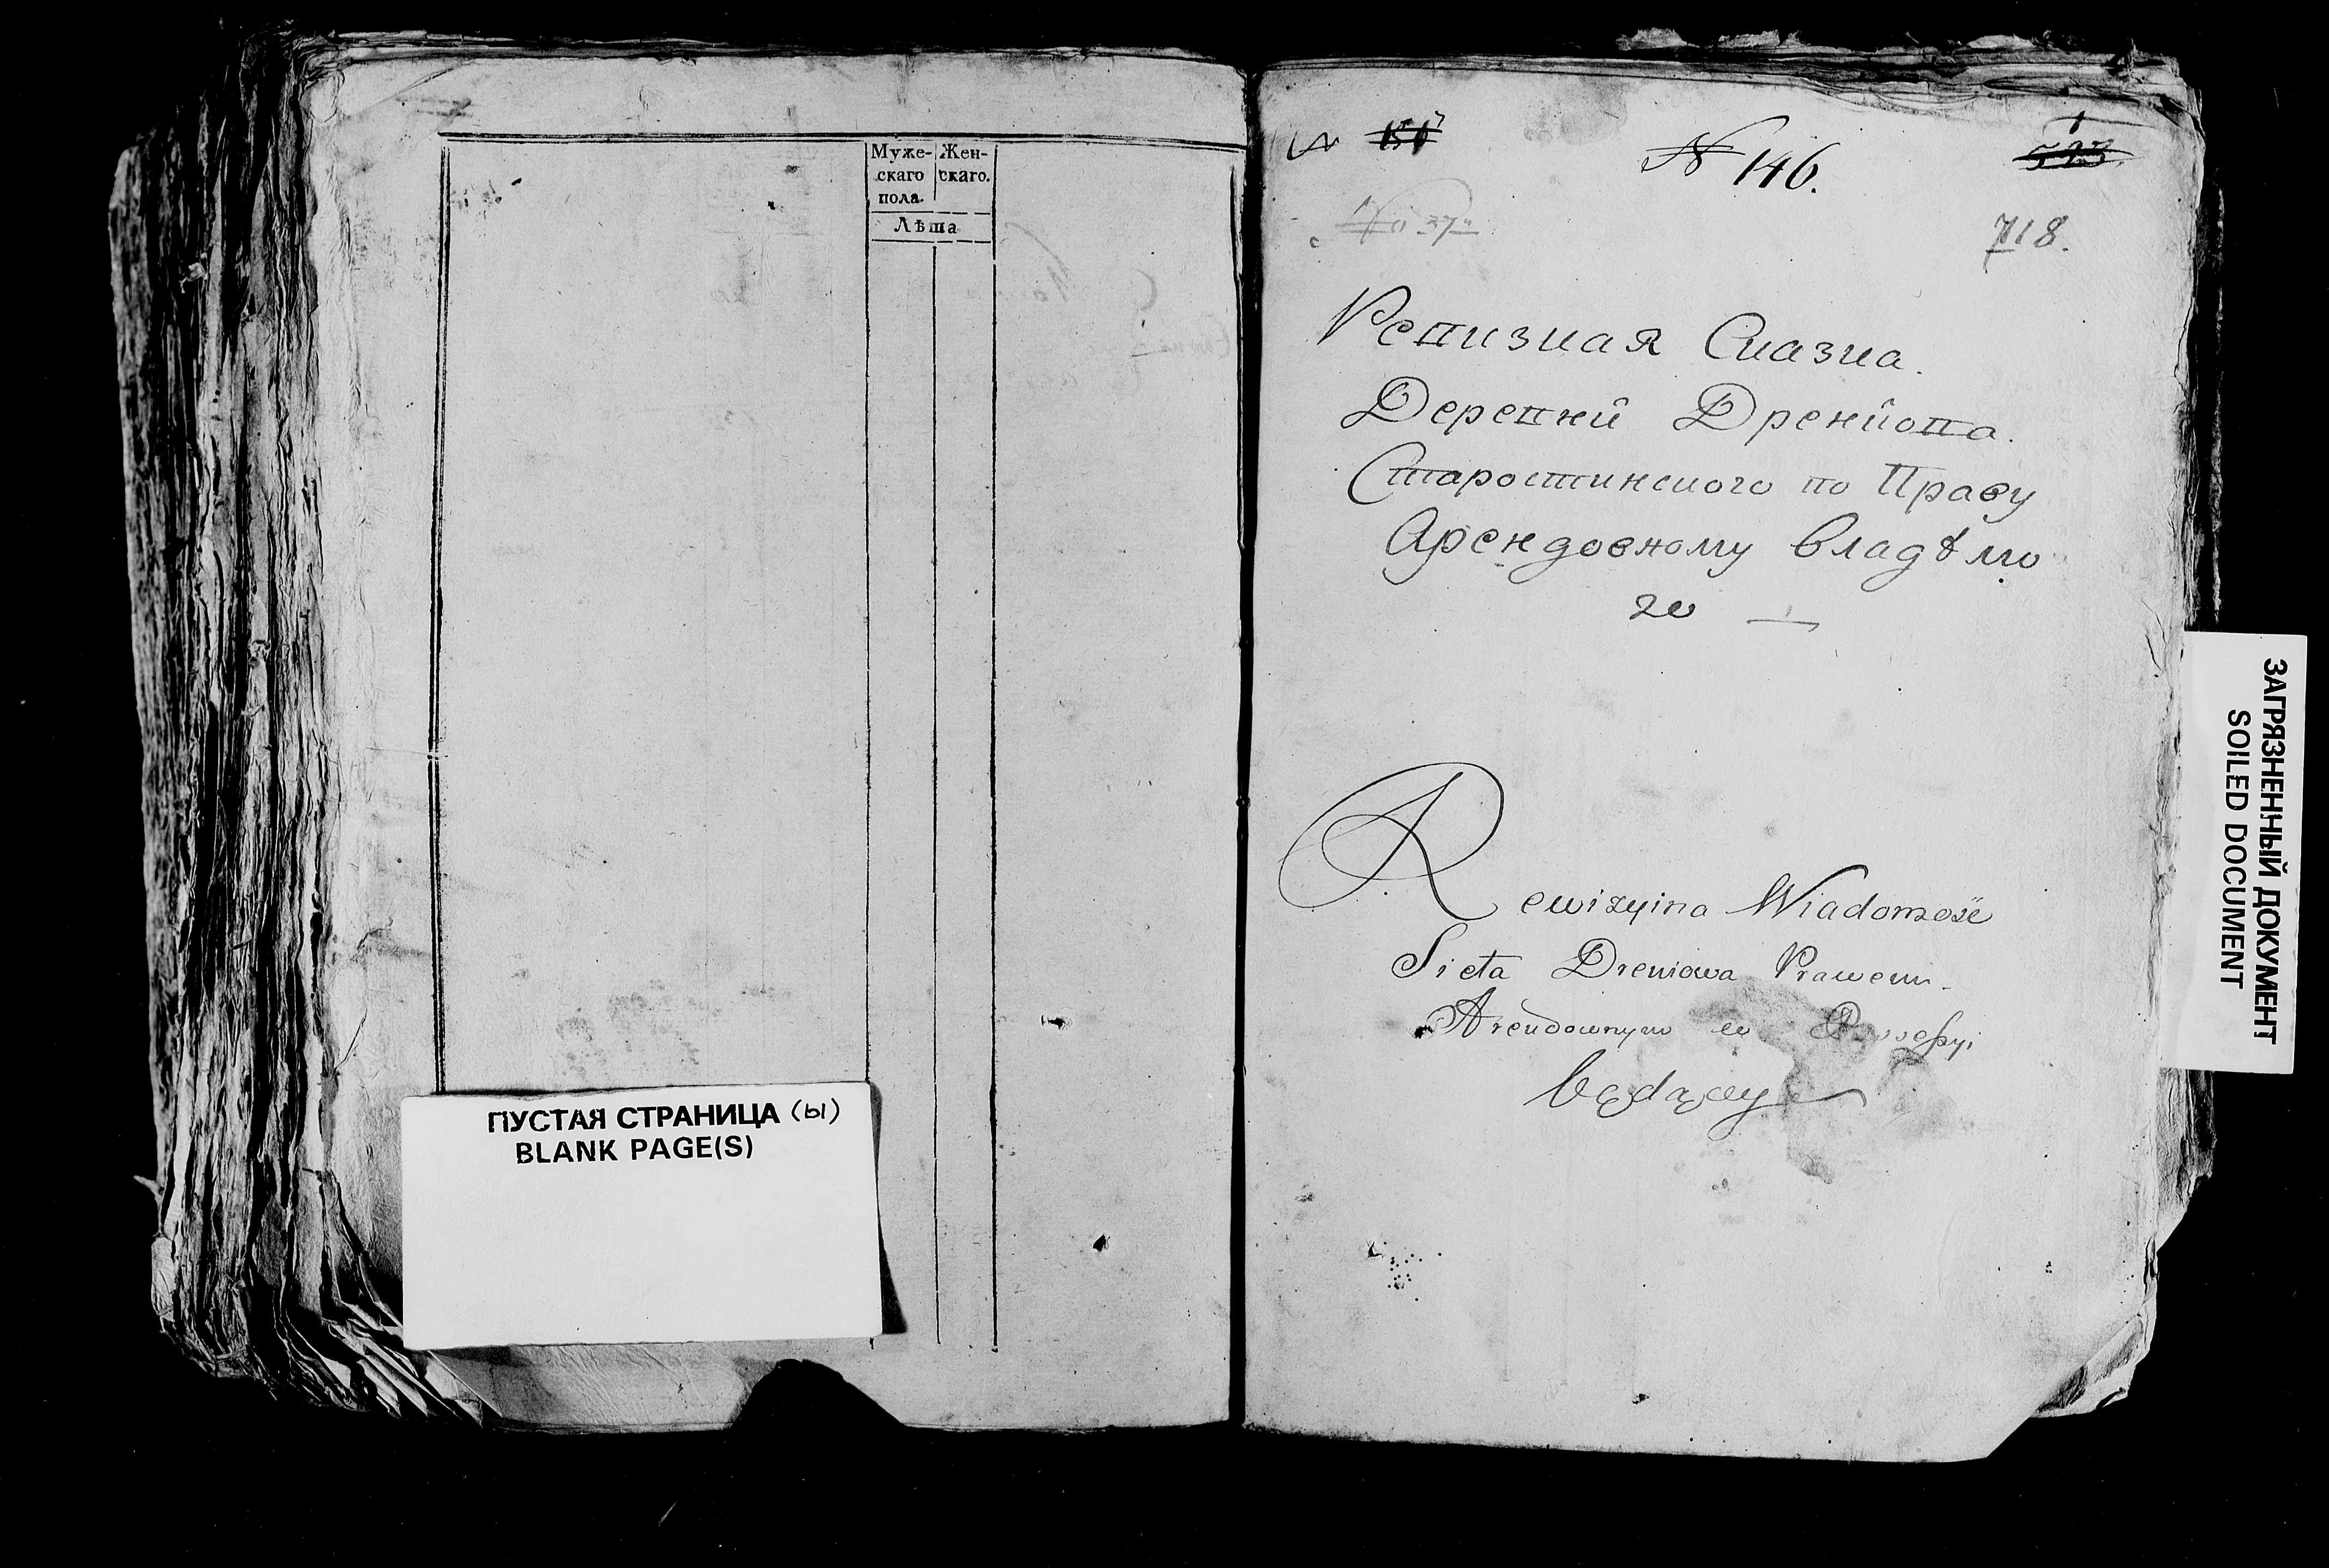 Муже-
скаго
пола.
Жен-
скаго.
Лѣта
ПУСТАЯ СТРАНИЦА (Ы)
BLANK PAGE(S)
№ 146.
718.
Ревизная Сказка.
Деревни Дренiова.
Старостинского по Праву
Арендовному владѣмо
го
Rewizyina Wiadomość
Sieła Dreniowa Prawem
Arendownym w Possessyi
będący
ЗАГРЯЗНЕННЫЙ ДОКУМЕНТ
SOILED DOCUMENT